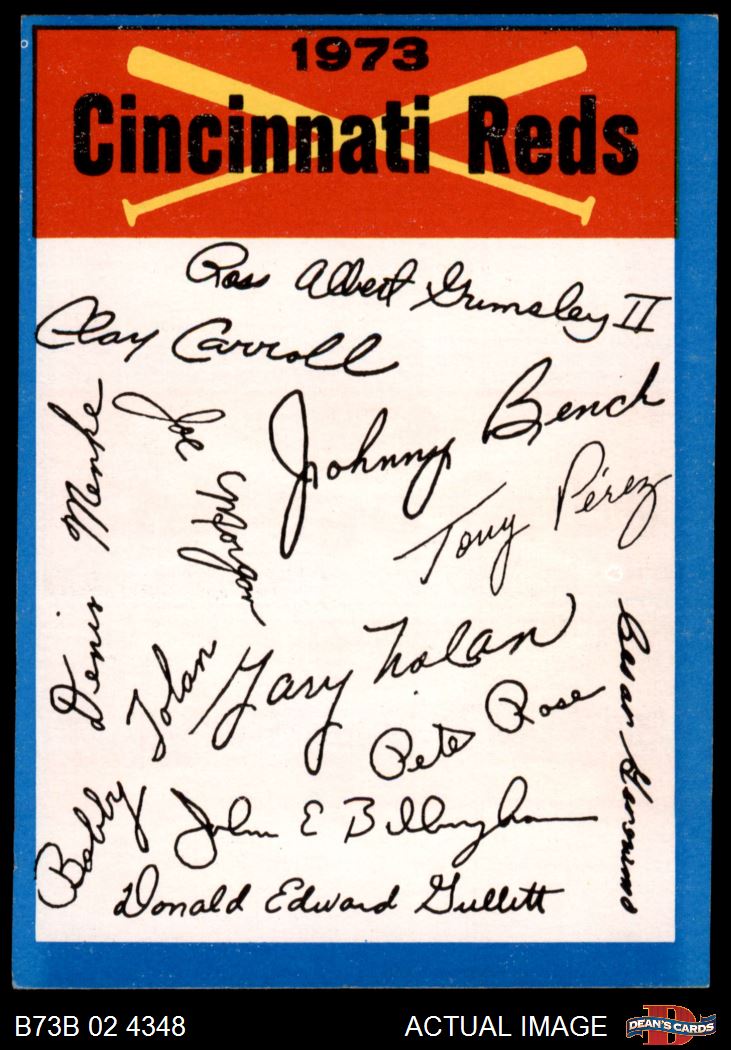 1973
Cincinnati Reds
Ross Albert Grimsley II
Clay Carroll
Johnny Bench
Denis Menke
Joe Morgan
Tony Pérez
Gary Nolan
Cesar Geronimo
Bobby Tolan
Pete Rose
John E Billingham
Donald Edward Gullett
B73B 02 4348
ACTUAL IMAGE
D
DEAN'S CARDS